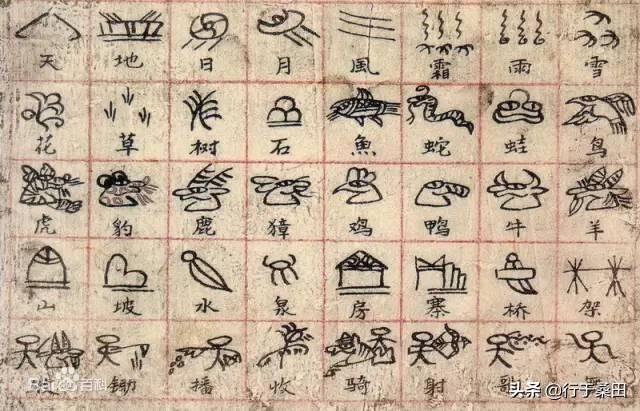 天 地 日 月 風 霜 雨 雪
花 草 树 石 魚 蛇 蛙 鸟
虎 豹 鹿 獐 鸡 鸭 牛 羊
山 坡 水 泉 房 寨 桥 架
锄 播 收 骑 射 歌
Baidu百科
头条 @行于桑田